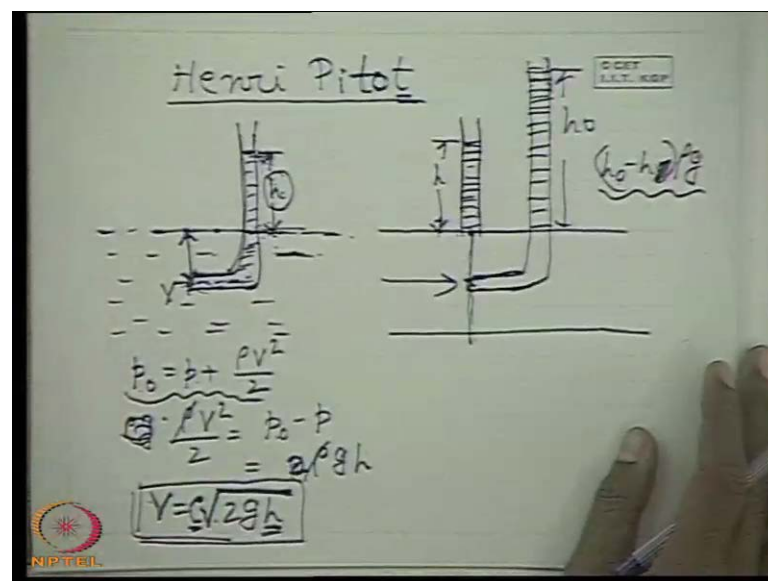 Henri Pitot
C CET
I.I.T. KGP
h₀
h
h₀
(h₀-h)ρg
Y
p₀ = p + ρV²/2
ρV²/2 = p₀ - p
= ρgh
V = C√2gh
NPTEL